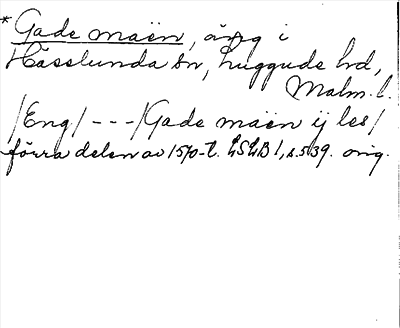 * Gade maën, äng i
Hässlunda sn, Luggude hd,
Malm. l.
/Eng/ - - - /Gade maën ij les/
förra delen av 1570-t. LSLB 1, s. 539. orig.